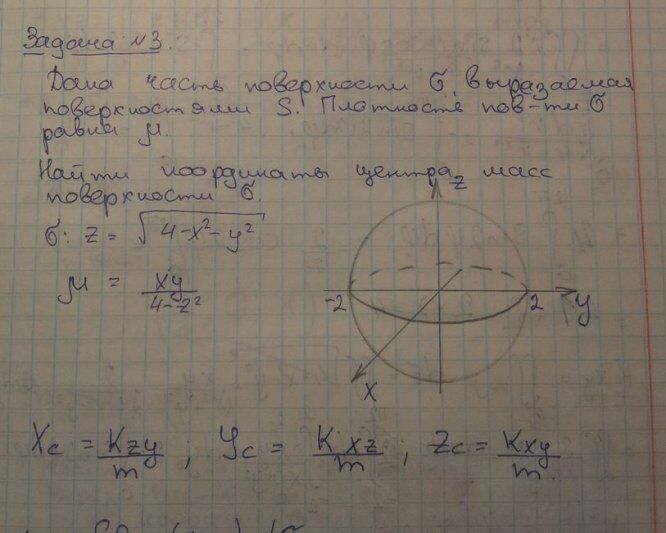 Задача №3.
Дана часть поверхности б, выразаемая
поверхностями S. Плотность пов-ти б
равна μ.
Найти координаты центра масс
поверхности б.
б: z = √4-x²-y²
μ = xy / 4-z²
z
-2
2
y
x
Xc = Kzy / m ; Yc = Kxz / m ; Zc = Kxy / m.